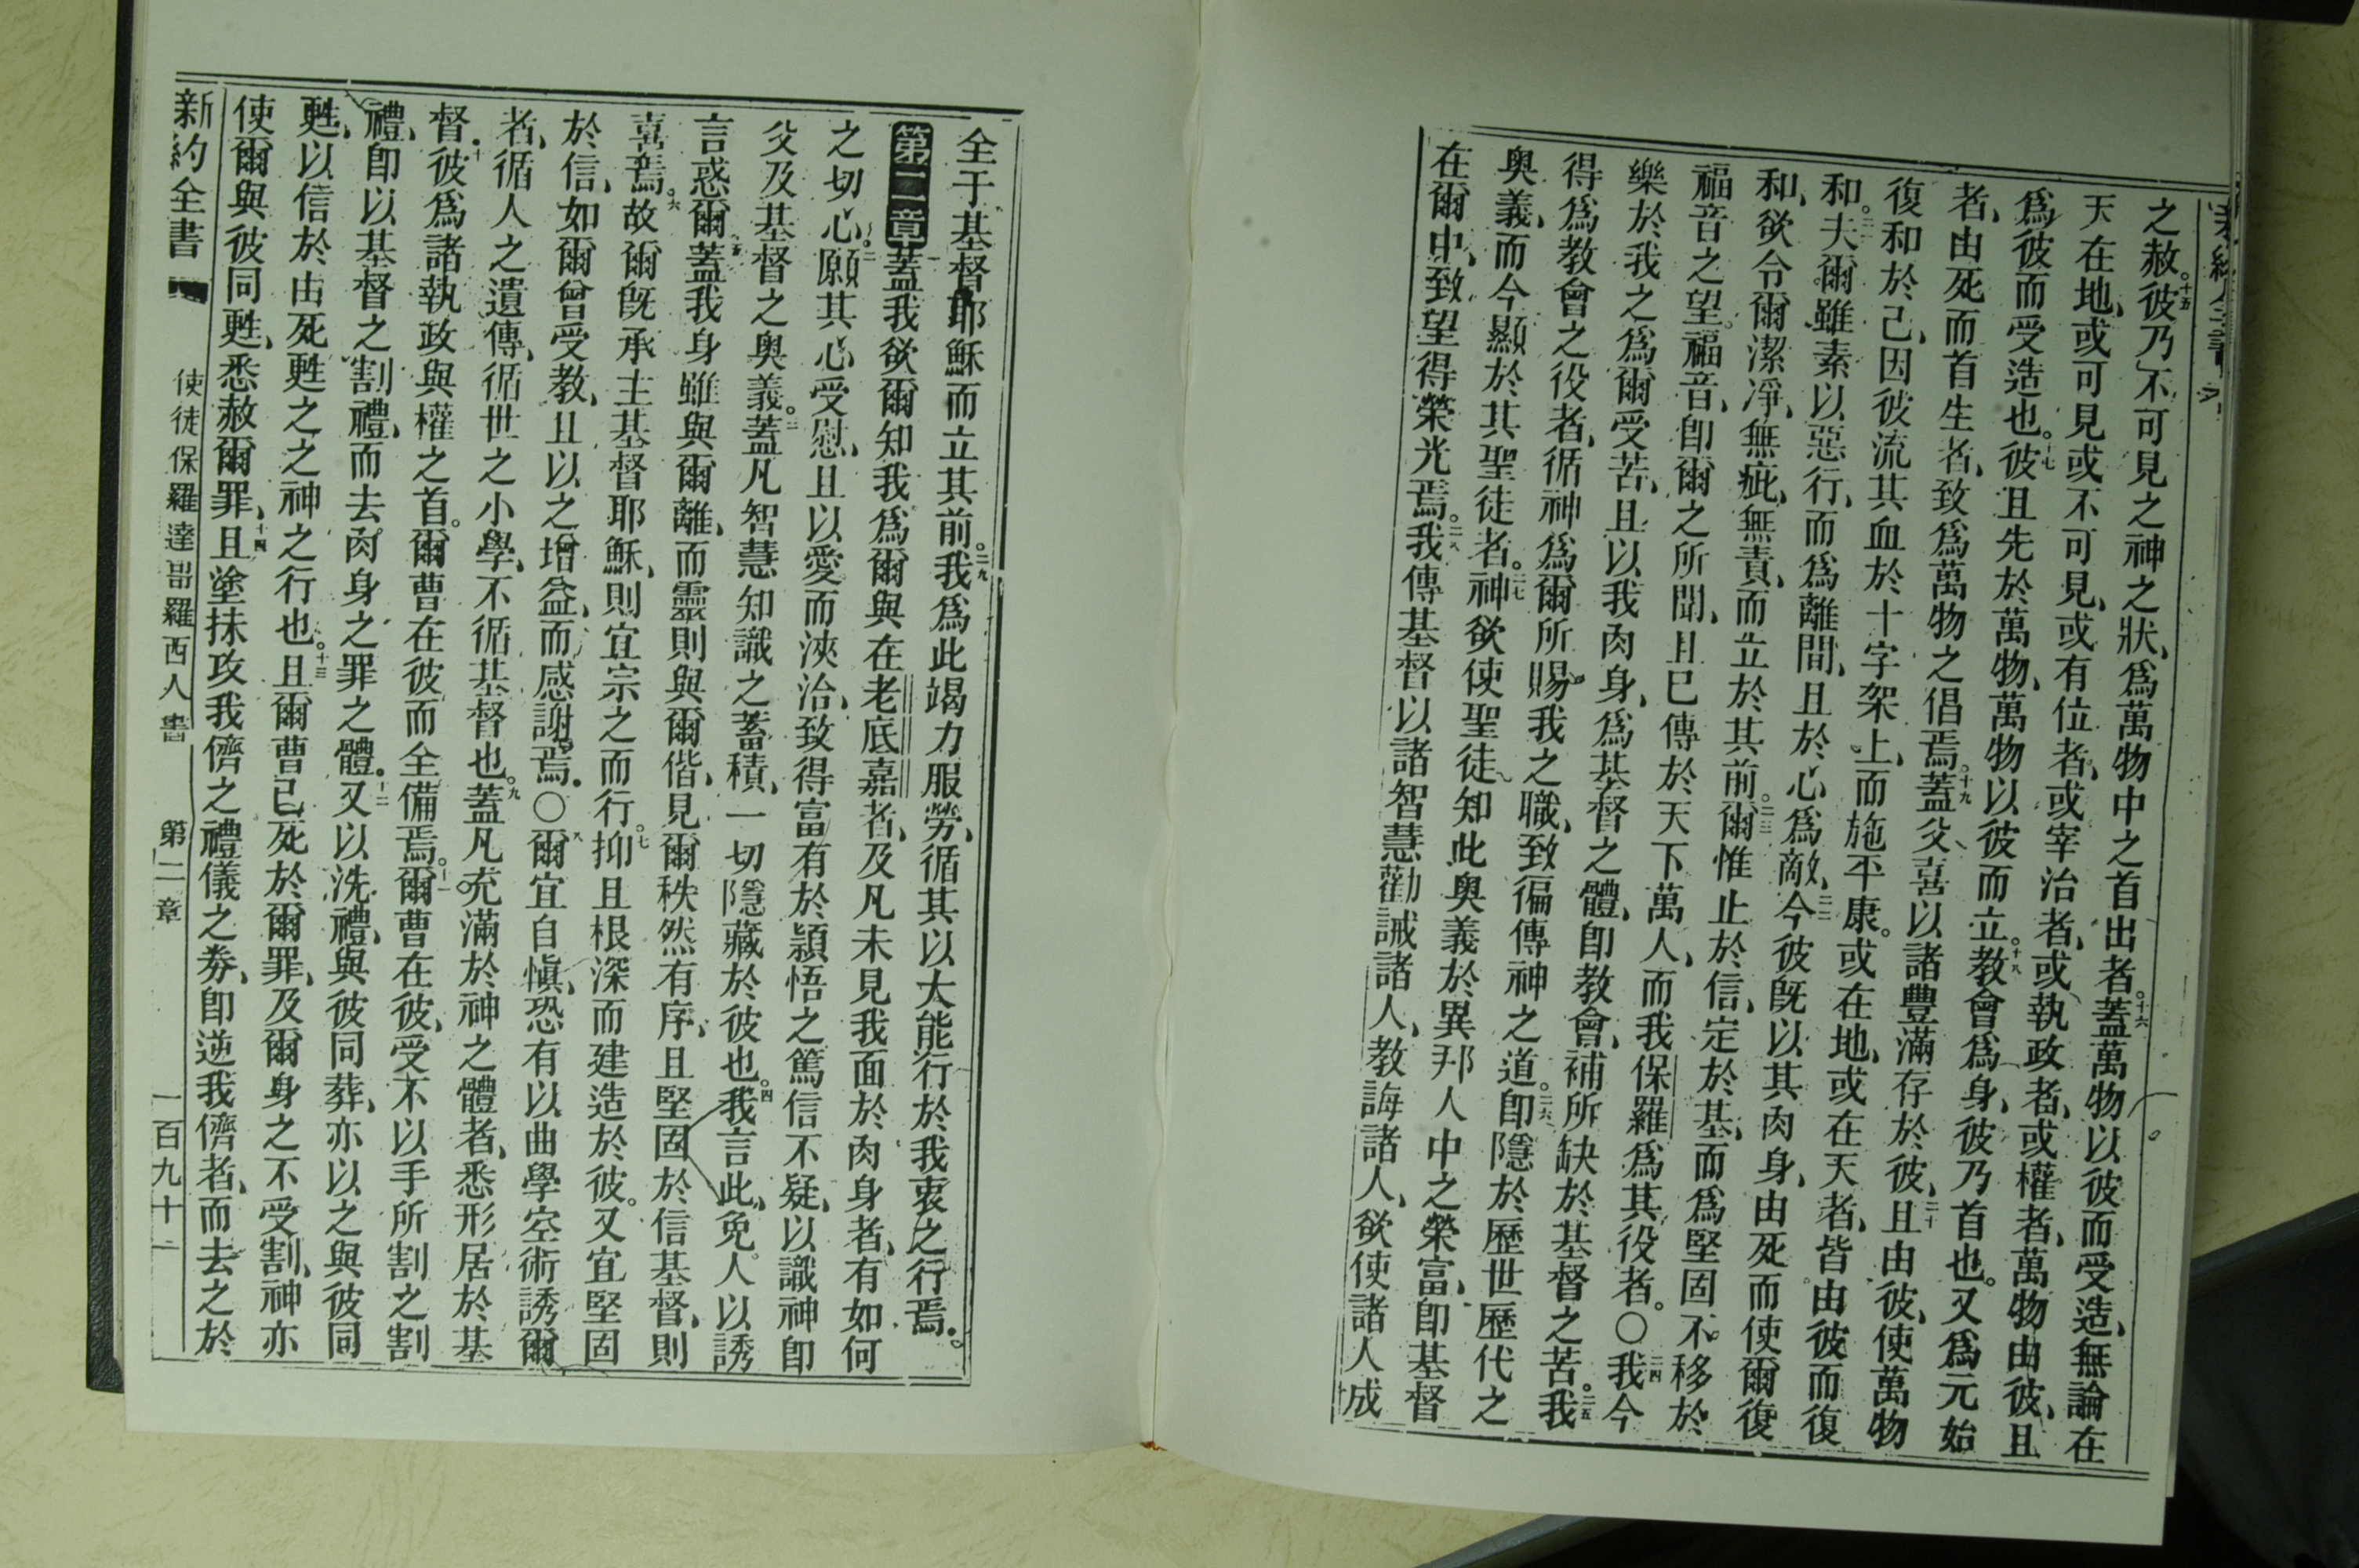 之赦。十五彼乃不可見之神之狀、爲萬物中之首出者。十六蓋萬物以彼而受造、無論在
天在地、或可見或不可見、或有位者、或宰治者、或執政者、或權者、萬物由彼、且
爲彼而受造也。十七彼且先於萬物、萬物以彼而立。十八教會爲身、彼乃首也。又爲元始
者、由死而首生者、致爲萬物之倡焉。十九蓋父喜以諸豐滿存於彼、二十且由彼、使萬物
復和於己、因彼流其血於十字架上、而施平康。或在地、或在天者、皆由彼而復
和。二一夫爾雖素以惡行、而爲離間、且於心爲敵、二二今彼旣以其肉身、由死而使爾復
和、欲令爾潔淨、無疵、無責、而立於其前。二三爾惟止於信、定於基、而爲堅固不移於
福音之望。福音、卽爾之所聞、且已傳於天下萬人、而我保羅爲其役者。〇二四我今
樂於我之爲爾受苦、且以我肉身、爲基督之體、卽教會、補所缺於基督之苦。二五我
得爲教會之役者、循神爲爾所賜我之職、致徧傳神之道。二六卽隱於歷世歷代之
奧義、而今顯於其聖徒者。二七神欲使聖徒知此奧義於異邦人中之榮富、卽基督
在爾中、致望得榮光焉。二八我傳基督以諸智慧勸誡諸人、教誨諸人、欲使諸人成
全于基督耶穌而立其前。二九我爲此竭力服勞、循其以大能行於我衷之行焉。
第二章一蓋我欲爾知我爲爾與在老底嘉者、及凡未見我面於肉身者、有如何
之切心。二願其心受慰、且以愛而浹洽、致得富有於穎悟之篤信不疑、以識神卽
父及基督之奧義。三蓋凡智慧知識之蓄積、一切隱藏於彼也。四我言此、免人以誘
言惑爾。五蓋我身雖與爾離、而靈則與爾偕、見爾秩然有序、且堅固於信基督、則
喜焉。六故爾旣承主基督耶穌、則宜宗之而行。七抑且根深而建造於彼。又宜堅固
於信、如爾曾受教、且以之增益、而感謝焉。〇八爾宜自愼、恐有以曲學空術誘爾
者、循人之遺傳、循世之小學、不循基督也。九蓋凡充滿於神之體者、悉形居於基
督。十彼爲諸執政與權之首。爾曹在彼而全備焉。十一爾曹在彼、受不以手所割之割
禮、卽以基督之割禮、而去肉身之罪之體。十二又以洗禮、與彼同葬、亦以之與彼同
甦、以信於由死甦之之神之行也。十三且爾曹已死於爾罪、及爾身之不受割、神亦
使爾與彼同甦、悉赦爾罪、十四且塗抹攻我儕之禮儀之券、卽逆我儕者、而去之於
新約全書
使徒保羅達哥羅西人書
第二章
一百九十一